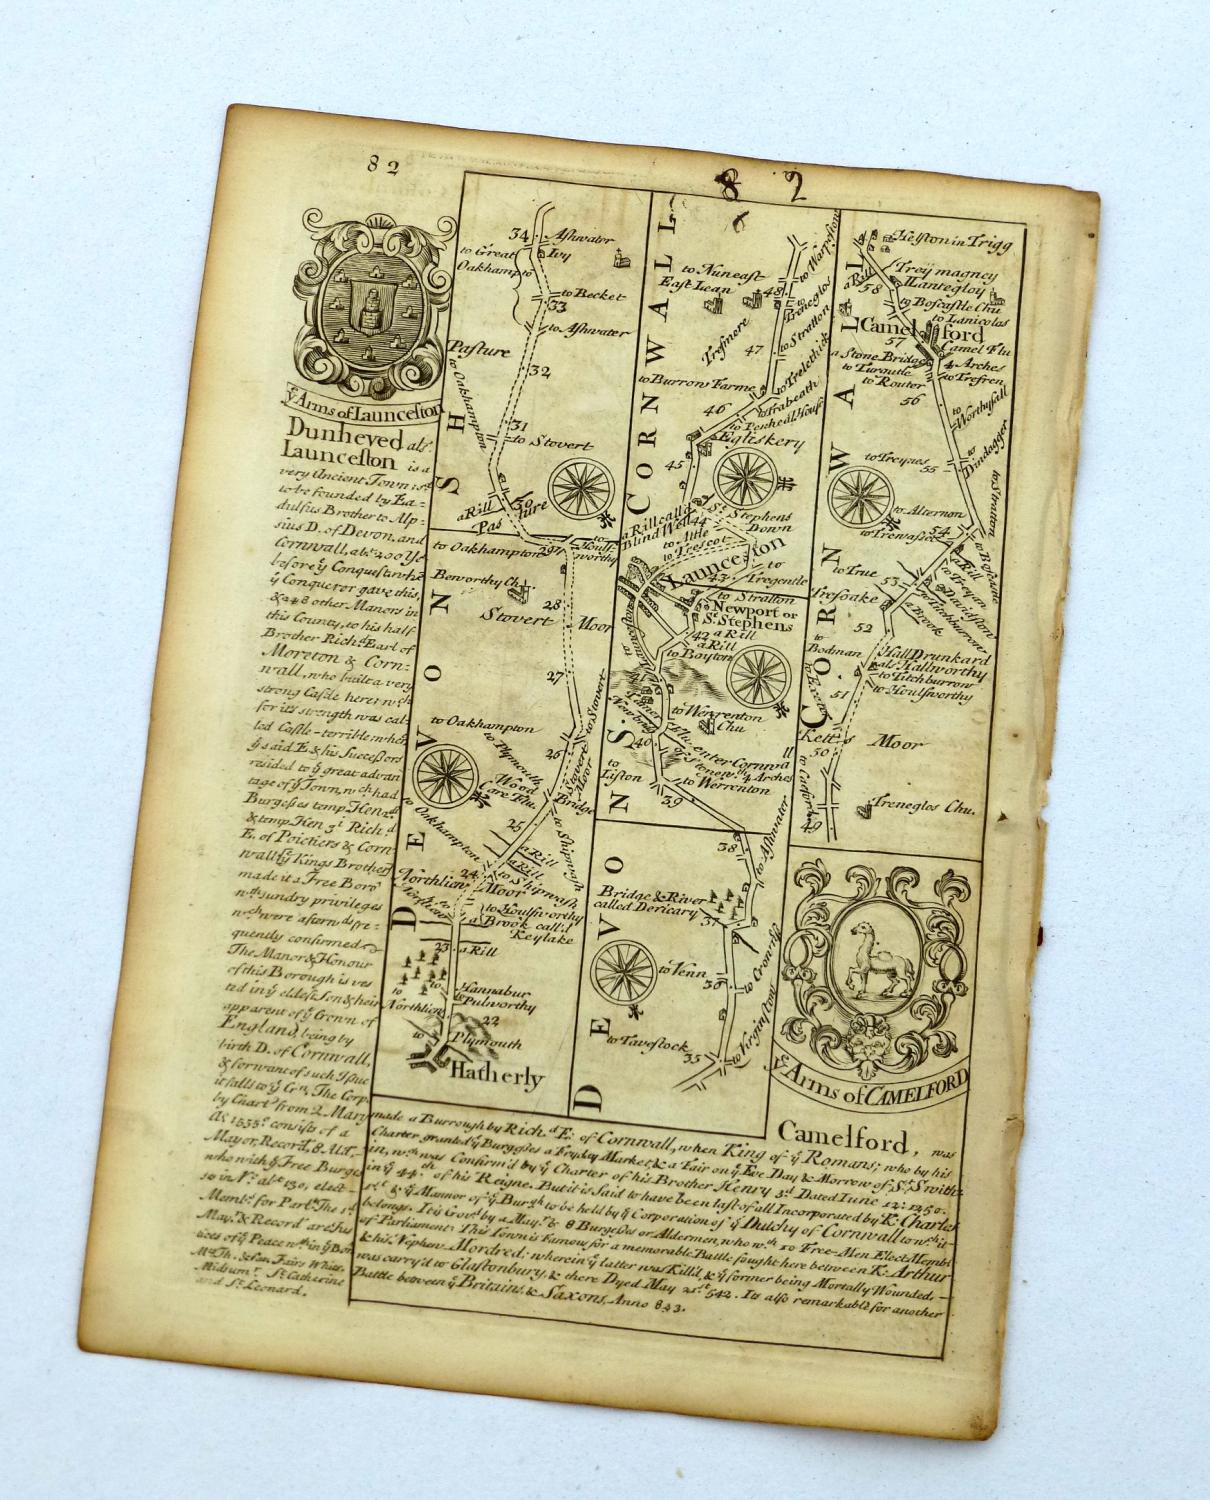 82
82
ẙ Arms of Launceston
Dunheved als.
Launceston is a
very Ancient Town: sd.
to be founded by Ea=
dulfus Brother to Alp=
sius D. of Devon, and
Cornwall, abt. 200 Ys.
before ẙ Conquest: wch
ẙ Conqueror gave this,
& 248 other Manors in
this County, to his half
Brother Richd. Earl of
Moreton & Corn=
wall, who built a very
strong Castle here: wch
for its strength was cal=
led Castle-terrible: wher
ẙ said E. & his Successors
resided to ẙ great advan
tage of ẙ Town, wch had
Burgesses temp. Hen 2d
& temp. Hen 3d Richd
E. of Poictiers & Corn
wall ẙ Kings Brother
made it a Free Boro'
wth sundry privileges
wch were afterwds fre=
quently confirmed
The Manor & Honour
of this Borough is ves
ted in ẙ eldest Son & heir
apparent of ẙ Crown of
England, being by
birth D. of Cornwall,
& for want of such Issue
it falls to ẙ Gn. The Corp.
by Chartr from 2 Mary
Ao 1555 consists of a
Mayor, Recordr, 8 Ald=
who with ẙ Free Burge
so in No. abt. 130, elect
Membs. for Parlt. The
Mayr. & Recordr are Jus
tices of ẙ Peace wth in ẙ Bor
Mt. Th. & Sa. Fairs Whits.
Midsumr. St. Catherine
and St. Leonard.
DEVONSH
34
Ashwater
Ivy
to Great
Oakhampto
to Becket
33
to Ashwater
Pasture
32
to Oakhampton
31
to Stovert
30
a Rill
Pas ture
to Oakhampton
29
to Houlf
worthy
Beworthy Ch.
28
Stovert Moor
27
to Oakhampton
to Stovert
to Plymouth
26
Stovert Moor
Wood
Core Flu.
Bridge
to Oakhampton
25
to Shipwash
a Rill
a Rill
24
to Shipwash
Northlio Moor
to Houlsworthy
a Brook call'd
Keylake
23
a Rill
to
Northlio
Hannabur
& Pulworthy
22
to Plymouth
Hatherly
CORNWALL
to Warpston
to Nuneast
East Lean
48
to
Treneglos
to Stratton
Tresmore
47
to Trelethick
to Burrons Farme
to Trabeath
46
to Penheal House
Egleskery
45
a Rill call'd
Blind Well
44
St. Stephens
Down
to Attle
to Trescot
Launceston
43
to
Tregentle
to Stratton
Newport or
St. Stephens
42
a Rill
a Rill
to Boyton
to Wergenton
Chu
Newbridg
40
enter Cornwall
Stone wth 4 Arches
to
Liston
to Werrenton
39
DEVONS.
38
to Ashwater
Bridge & River
called Dericary
37
to Venn
36
to Crowth
to Tavestock
35
to Virginstow
CORNWALL
Helston in Trigg
a Rill
Trey magney
58
Lantegloy
to Boscastle Chu
to Lanicolas
Camelford
57
Camel Flu
a Stone Bridge
4 Arches
to Turoutle
to Trefren
to Router
56
to
Worthyfull
to
Dindagger
to Treynes
55
to Stratton
to Alternon
54
to Trewassick
to Boscastle
a Rill
to True
to Treyen
53
to Davidston
to Titchburrow
Tresoake
a Brook
52
to
Bodman
Hall Drunkard
als Hallworthy
to Titchburrow
to Houlsworthy
51
Ketts Moor
50
Treneglos Chu.
49
ẙ Arms of CAMELFORD
Camelford, was
made a Burrough by Richd. E. of Cornwall, when King of ẙ Romans; who by his
Charter granted ẙ Burgesses a Fryday Market, & a Fair on ẙ Eve Day & Morrow of St. Swith=
in, wch was Confirm'd by ẙ Charter of his Brother Henry 3d Dated Iune 12: 1250.
in ẙ 44th of his Reigne. But it is Said to have been last of all Incorporated by K. Charles
1st & ẙ Mannor of ẙ Burgh to be held by ẙ Corporation of ẙ Dutchy of Cornwall to wch it
belongs. It is Govd by a Mayr. & 8 Burgesses or Aldermen, who wth 10 Free-Men Elect Membs
of Parliament. This Town is Famous for a memorable Battle fought here between K. Arthur
& his Nephew Mordred: wherein ẙ latter was Kill'd, & ẙ former being Mortally Wounded,
was carry'd to Glastonbury, & there Dyed May 21st 542. Its also remarkable for another
Battle between ẙ Britains, & Saxons, Anno 823.